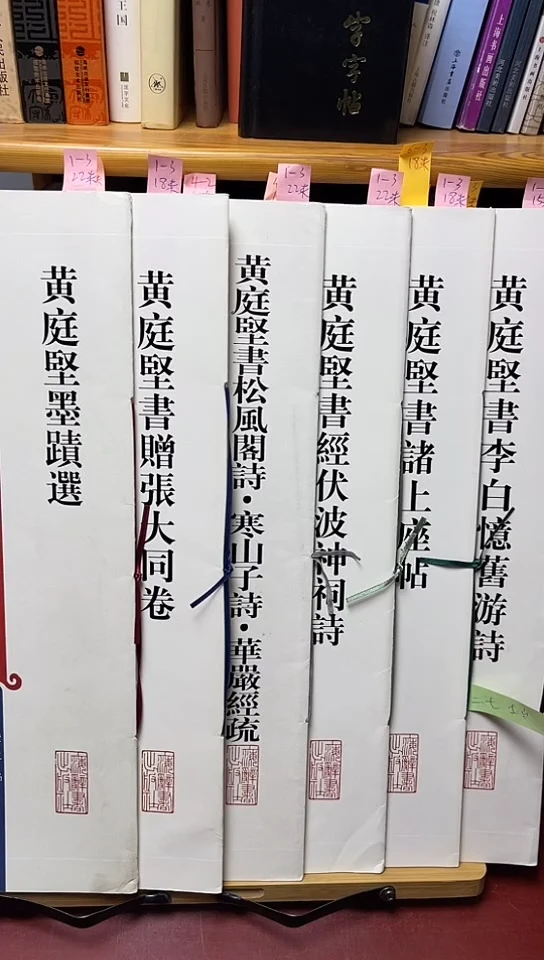 王国
字字帖
上海書店出版社
上海书画出版社
1-3
22未
1-3
18未
4-2
1-3
22未
1-3
22未
18未
1-3
18未
黄庭堅墨蹟選
黄庭堅書贈張大同卷
黄庭堅書松風閣詩·寒山子詩·華嚴經疏
黄庭堅書經伏波神祠詩
黄庭堅書諸上座帖
黄庭堅書李白憶舊游詩